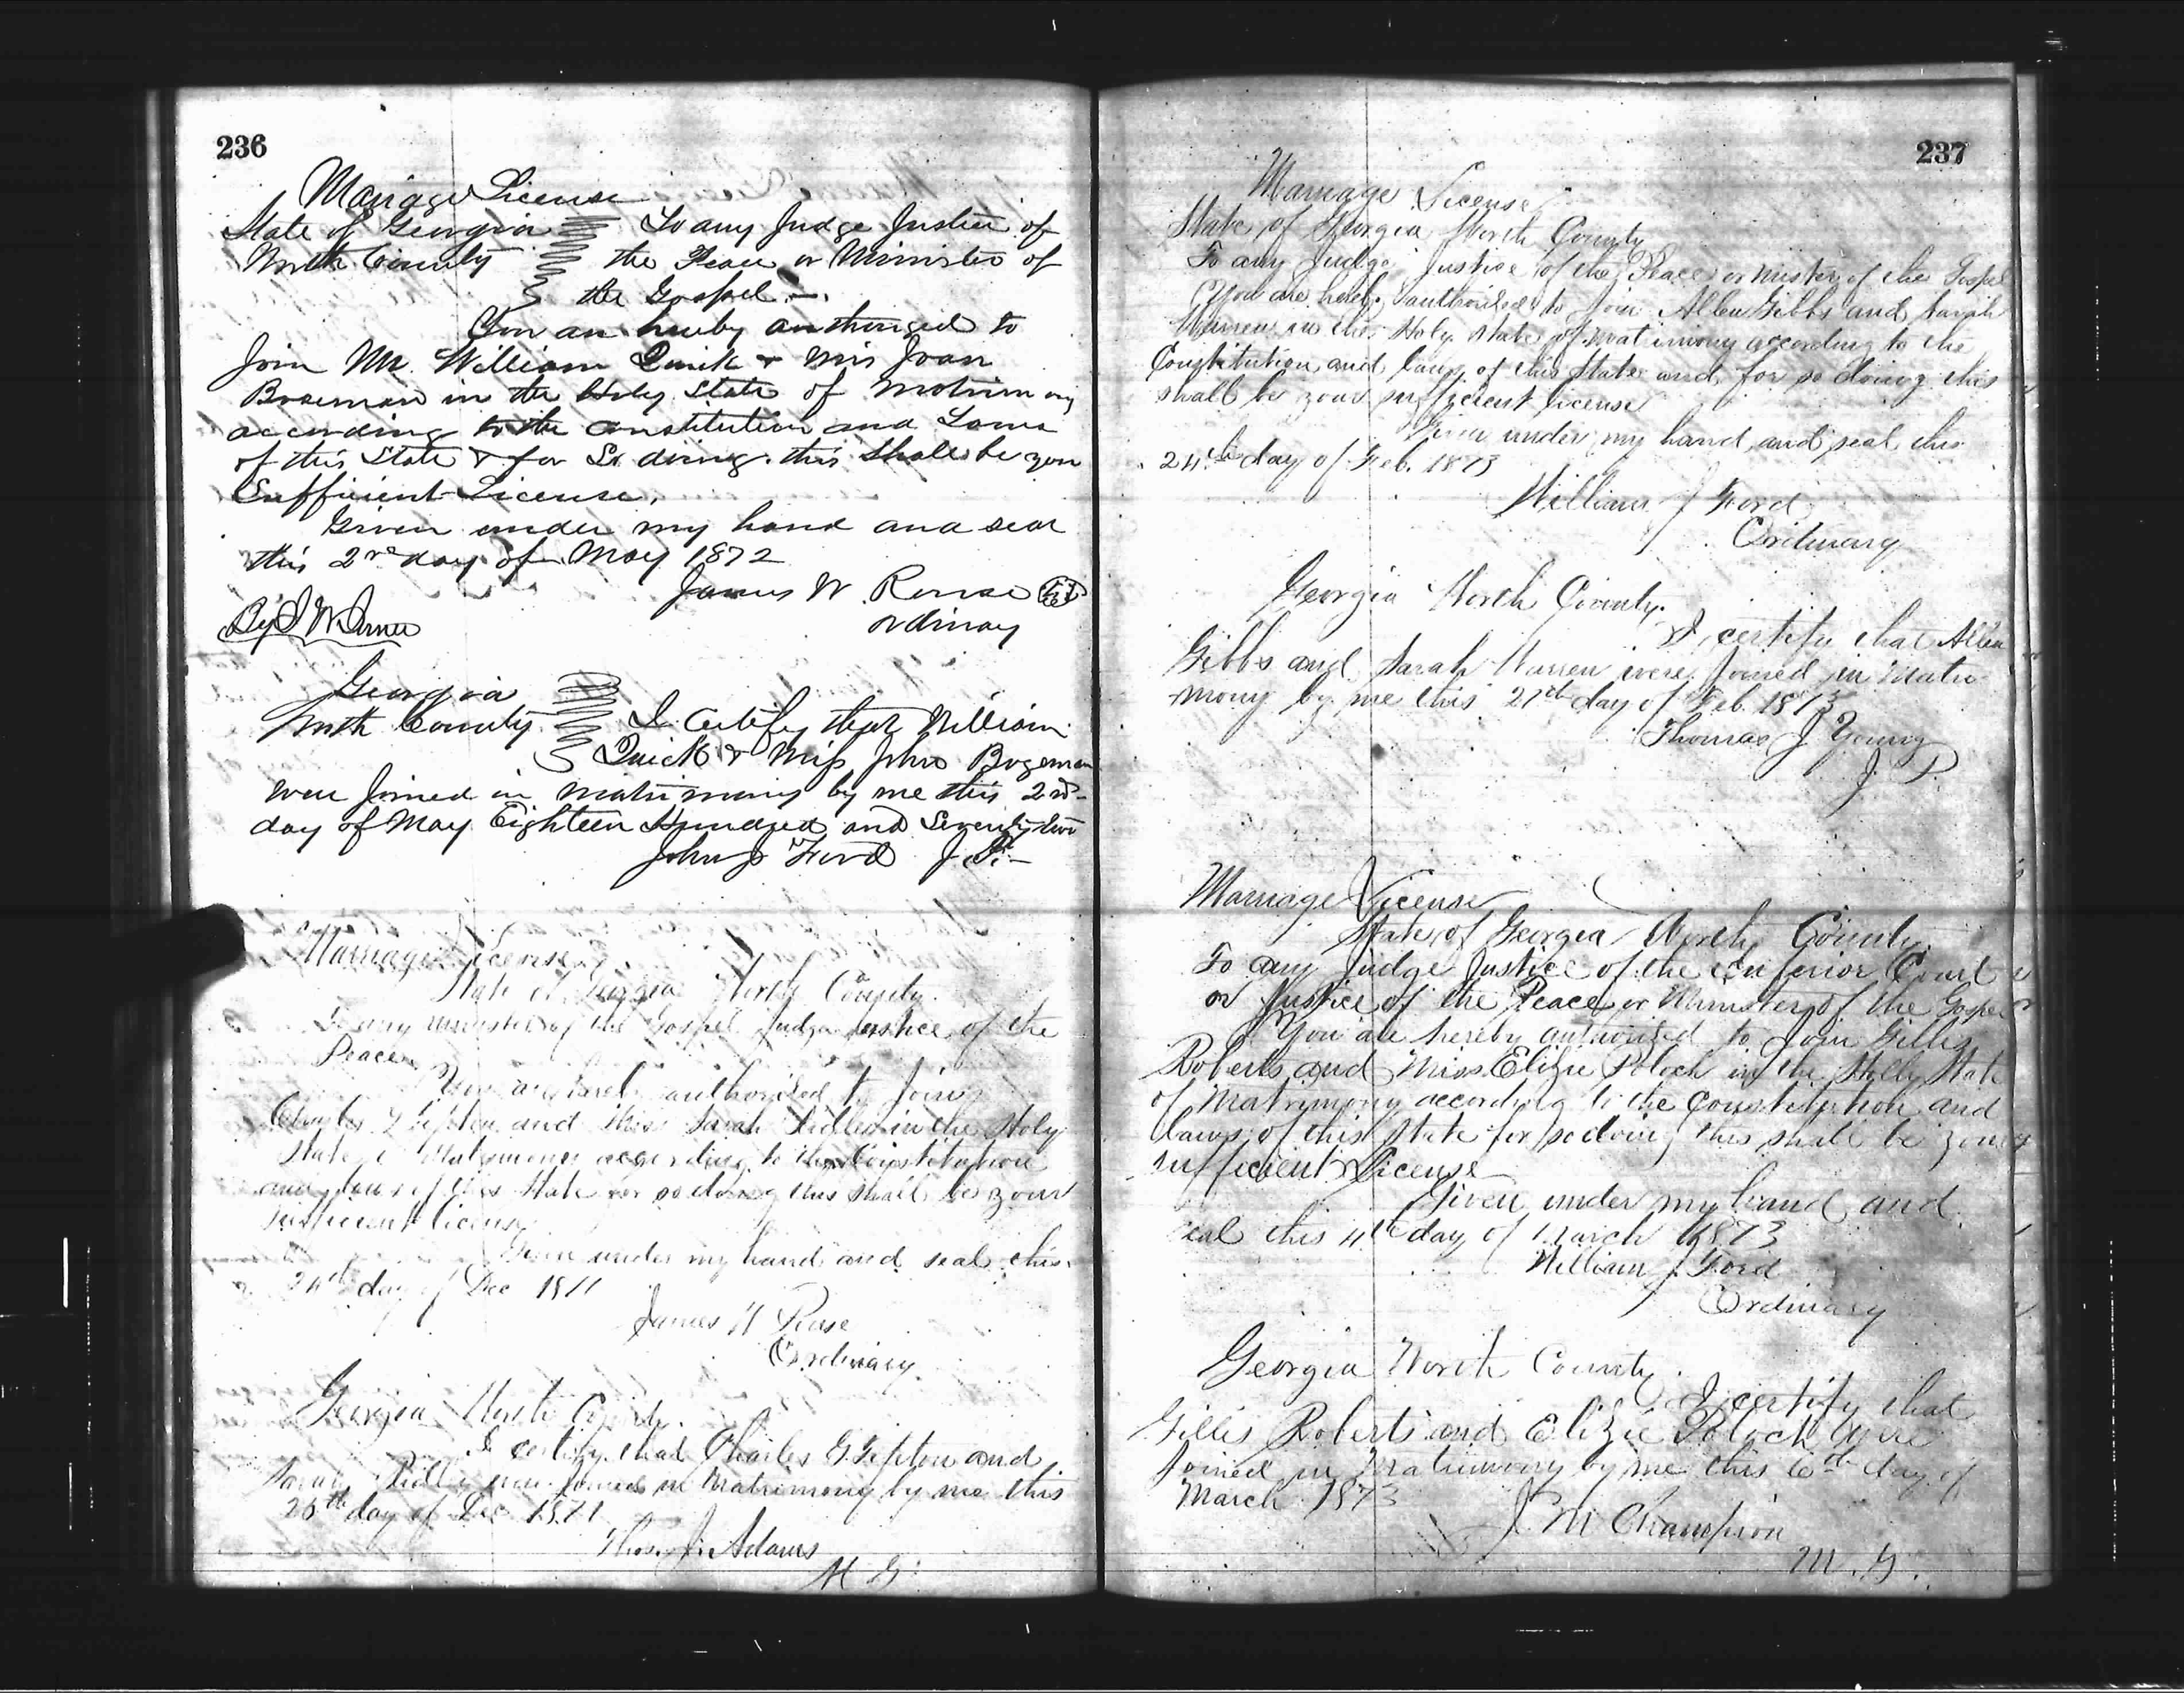 236
Marriage License
State of Georgia To any Judge Justice of
Worth County the Peace or Minister of
the Gospel.
You are hereby authorized to
Join Mr. William Quick & Miss Joan
Bozeman in the Holy State of Matrimony
according to the Constitution and Laws
of this State & for So doing this Shall be your
Sufficient License.
Given under my hand and seal
this 2nd day of May 1872
James W. Rouse
ordinary
By
Georgia
Worth County I Certify that William
Quick & Miss John Bozeman
were Joined in matrimony by me this 2nd
day of May Eighteen Hundred and Seventy two
John J Ford J.P.
Marriage License
State of Georgia Worth County
To any minister of the Gospel Judge Justice of the
Peace
You are hereby authorized to Join
Charles G Tipton and Miss Sarah in the Holy
State of Matrimony according to the Constitution
and laws of this State for so doing this shall be your
sufficient license
Given under my hand and seal this
24th day of Dec 1871
James W Rouse
Ordinary
Georgia Worth County.
I certify that Charles G Tipton and
Sarah were Joined in Matrimony by me this
26th day of Dec 1871
Thos. J. Adams
M G
237
Marriage License
State of Georgia Worth County
To any Judge Justice of the Peace or mister of the Gospel
You are hereby authorised to Join Allen Gibbs and Sarah
Warren in the Holy state of matrimony according to the
Constitution and laws of this State and for so doing this
shall be your sufficient license
Given under my hand and seal this
24th day of Feb. 1873
William J Ford
Ordinary
Georgia Worth County.
I certify that Allen
Gibbs and Sarah Warren were Joined in Matri-
mony by me this 27th day of Feb. 1873
Thomas J Young
J. P
Marriage License
State of Georgia Worth County
To any Judge Justice of the Inferior Court
or Justice of the Peace or Minister of the Gospel
You are hereby authorized to Join Gillis
Roberts and Miss Elizie Poloch in the Holly State
of Matrimony according to the Constitution and
laws of this State for so doing this shall be your
sufficient License
Given under my hand and
seal this 4th day of March 1873
William J Ford
Ordinary
Georgia Worth County
I certify that
Gillis Roberts and Elizie Poloch were
Joined in Matrimony by me this 6th day of
March 1873
J. M Champion
M. G.